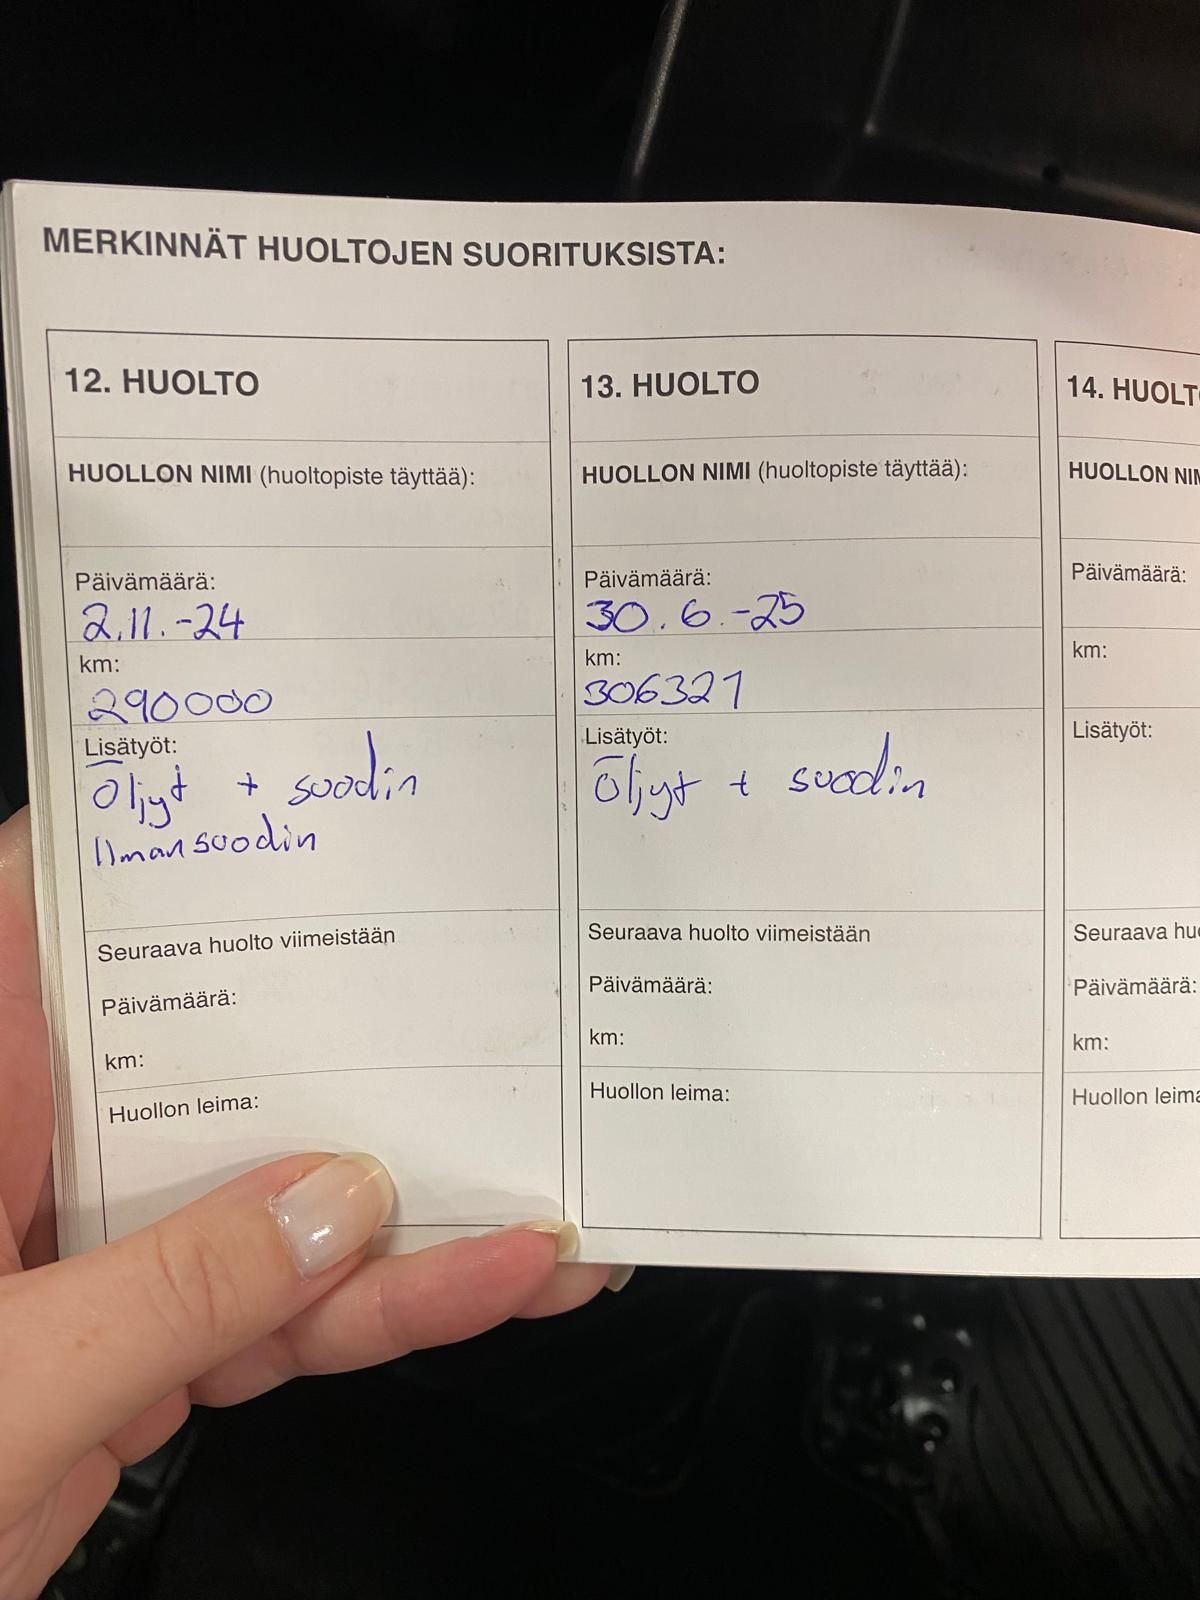 MERKINNÄT HUOLTOJEN SUORITUKSISTA:
12. HUOLTO
HUOLLON NIMI (huoltopiste täyttää):
Päivämäärä:
2.11.-24
km:
290000
Lisätyöt:
Öljyt + suodin
Ilmansuodin
Seuraava huolto viimeistään
Päivämäärä:
km:
Huollon leima:
13. HUOLTO
HUOLLON NIMI (huoltopiste täyttää):
Päivämäärä:
30.6.-25
km:
306321
Lisätyöt:
Öljyt + suodin
Seuraava huolto viimeistään
Päivämäärä:
km:
Huollon leima:
14. HUOLT
HUOLLON NIM
Päivämäärä:
km:
Lisätyöt:
Seuraava huo
Päivämäärä:
km:
Huollon leima